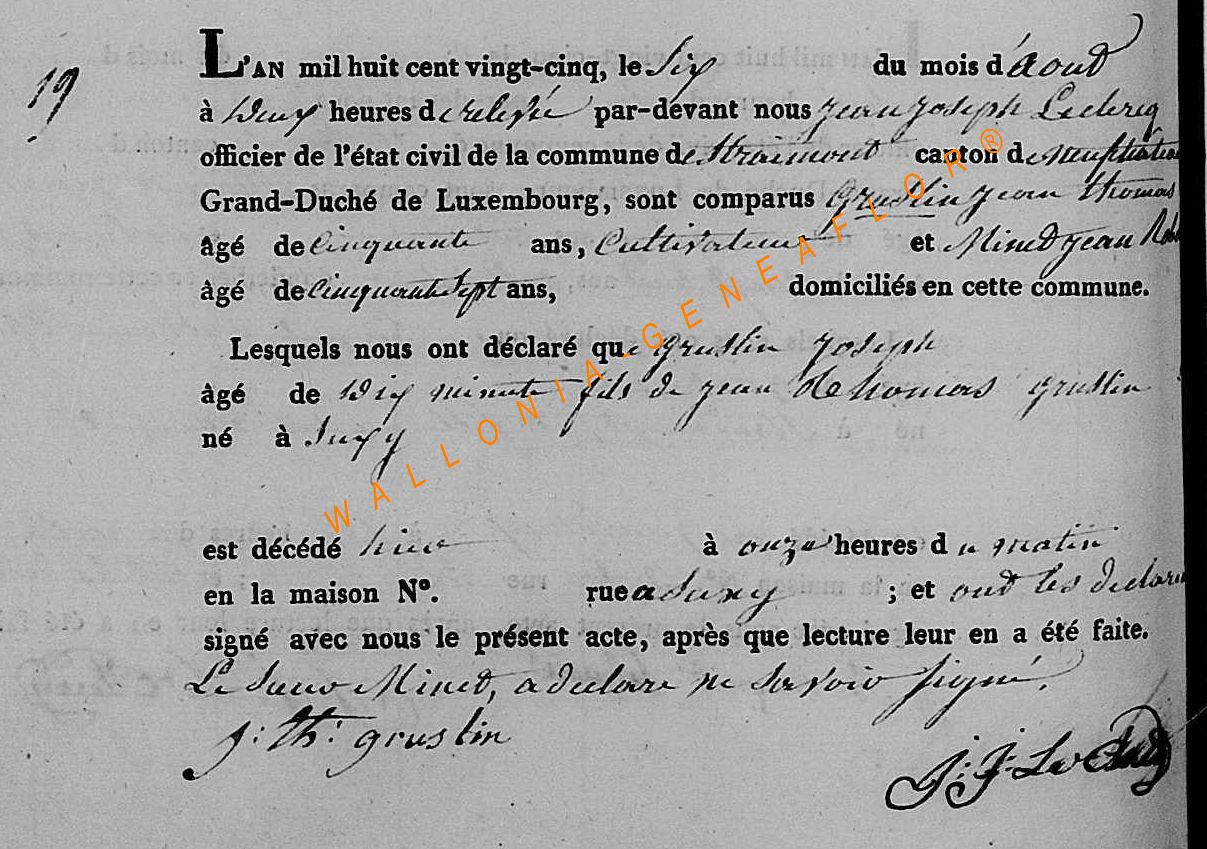 19
L'AN mil huit cent vingt-cinq, le Six du mois d'aout
à Deux heures de relevé par-devant nous jean joseph Leclercq
officier de l'état civil de la commune de Straimont canton de neufchateau
Grand-Duché de Luxembourg, sont comparus Gruslin jean thomas
âgé de cinquante ans, Cultivateur et Minet jean
âgé de cinquante sept ans, domiciliés en cette commune.
Lesquels nous ont déclaré que gruslin joseph
âgé de Dix minute fils de jean thomas gruslin
né à Suxy
est décédé hier à onze heures du matin
en la maison N°. rue a Suxy ; et ont les declarans
signé avec nous le présent acte, après que lecture leur en a été faite.
Le Minet, a declare ne savoir signé.
j: th: gruslin
J: J: Leclercq
WALLONIA-GENEAFLOR®